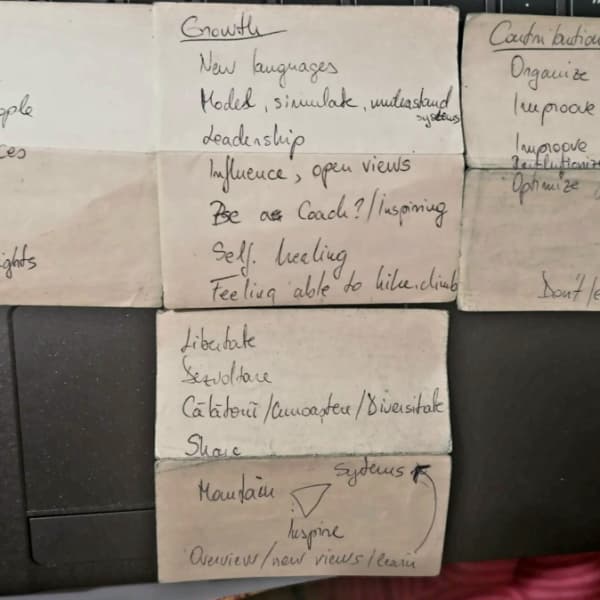 ople
ces
ights
Growth
New languages
Model, simulate, understand
systems
Leadership
Influence, open views
Be as Coach? / Inspiring
Self. healing
Feeling able to hike, climb
Contribution
Organize
Improove
Improove
Revolutionize
Optimize
Don't/
Libertate
Dezvoltare
Călătorii/Cunoaștere/Diversitate
Share
Systems
Mountain
Inspire
Overview/new views/learn